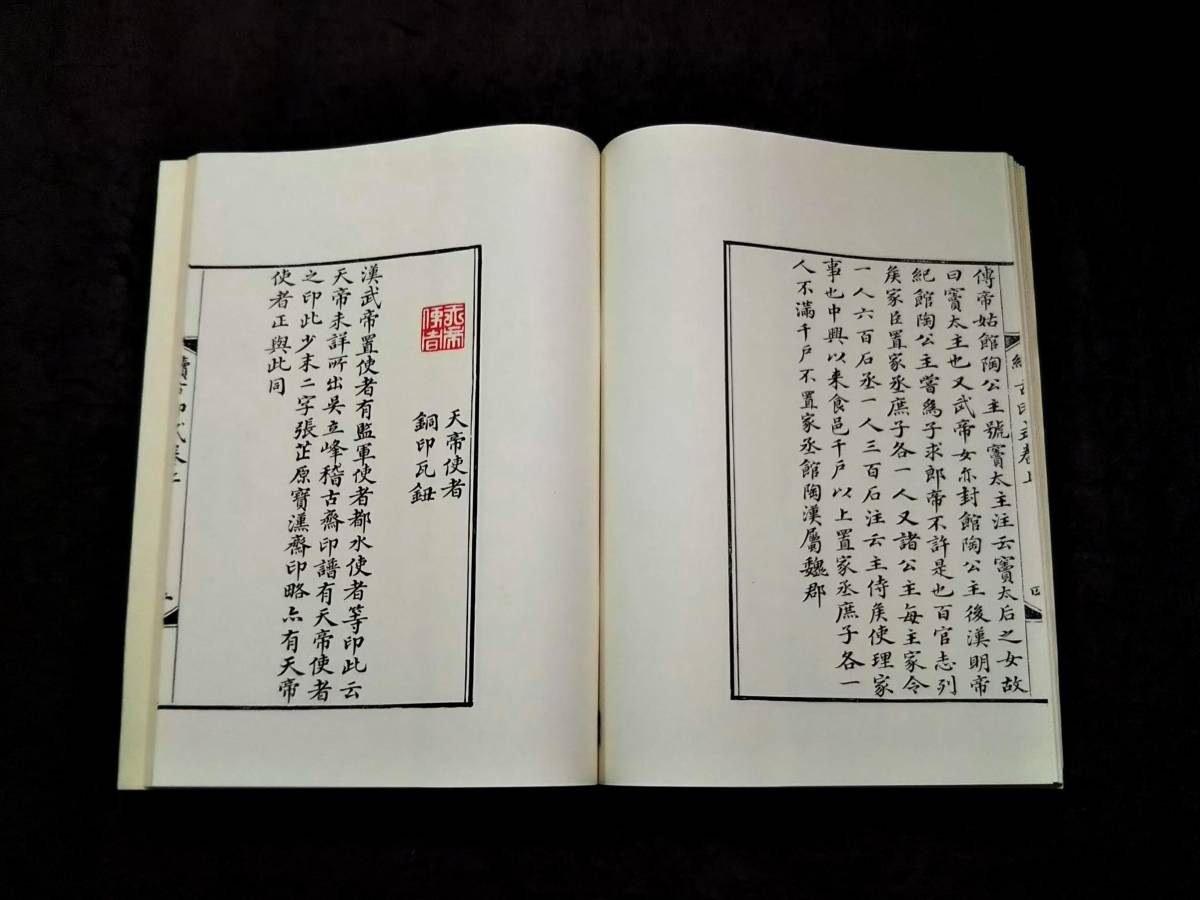 傳帝姑館陶公主號竇太主注云竇太后之女故
曰竇太主也又武帝女亦封館陶公主後漢明帝
紀館陶公主嘗為子求郎帝不許是也百官志列
矦家臣置家丞庶子各一人又諸公主每主家令
一人六百石丞一人三百石注云主侍矦使理家
事也中興以来食邑千戶以上置家丞庶子各一
人不滿千戶不置家丞館陶漢屬魏郡
天帝使者
天帝使者
銅印瓦鈕
漢武帝置使者有監軍使者都水使者等印此云
天帝未詳所出吳立峰稽古齋印譜有天帝使者
之印此少末二字張芷原寶漢齋印略亦有天帝
使者正與此同